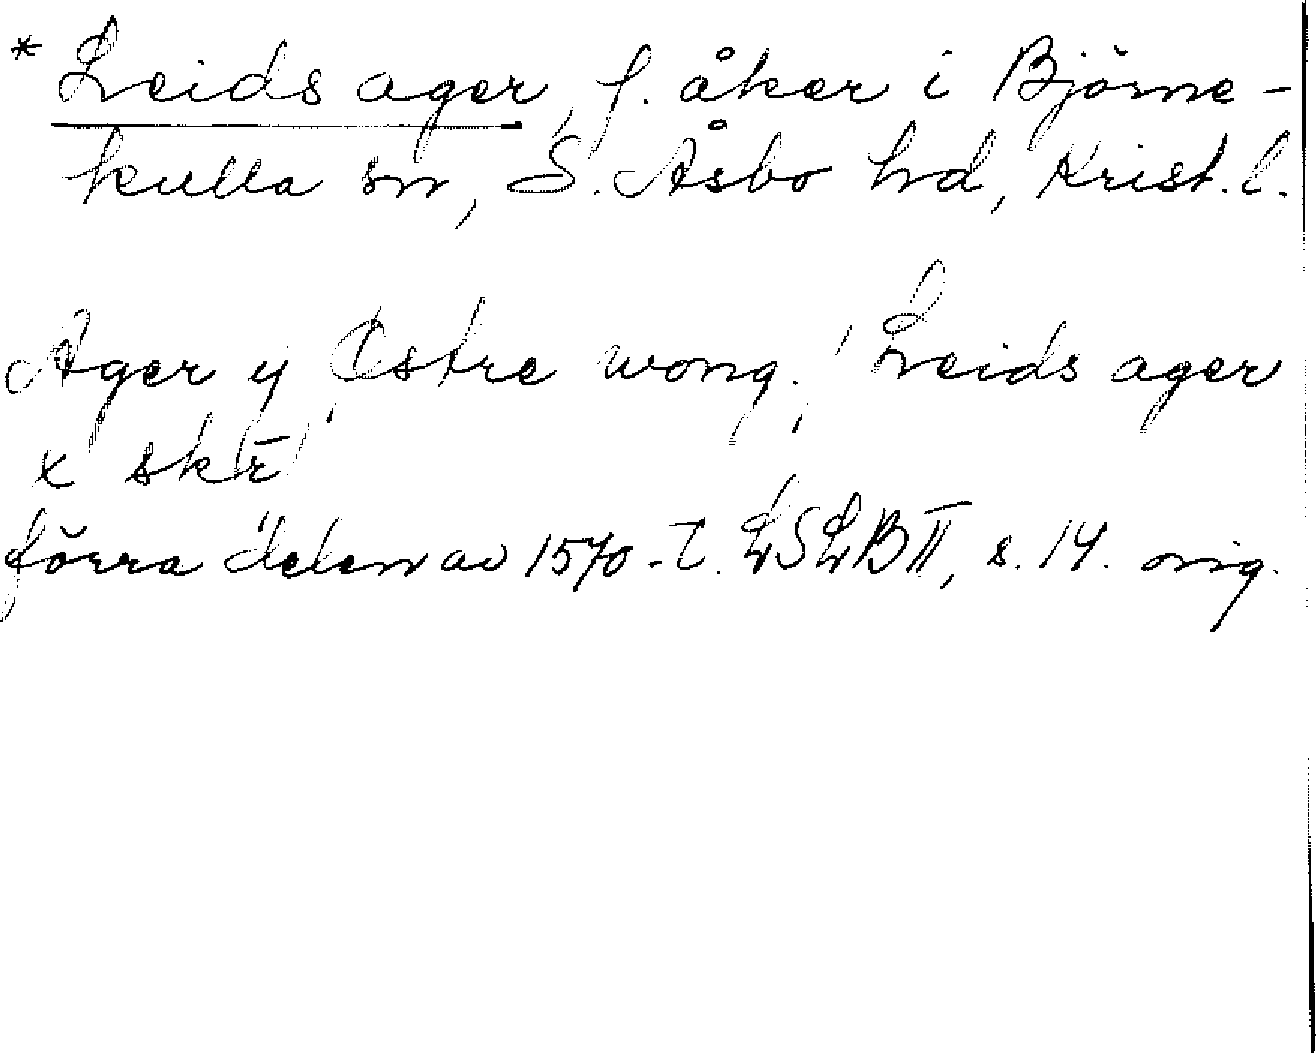 * Leids ager, f. åker i Björne-
kulla sn, S. Åsbo hd, Krist. l.
Ager y Østre wong. / Leids ager
x skr̄
förra delen av 1570-t. LSLB II, s. 14. orig.